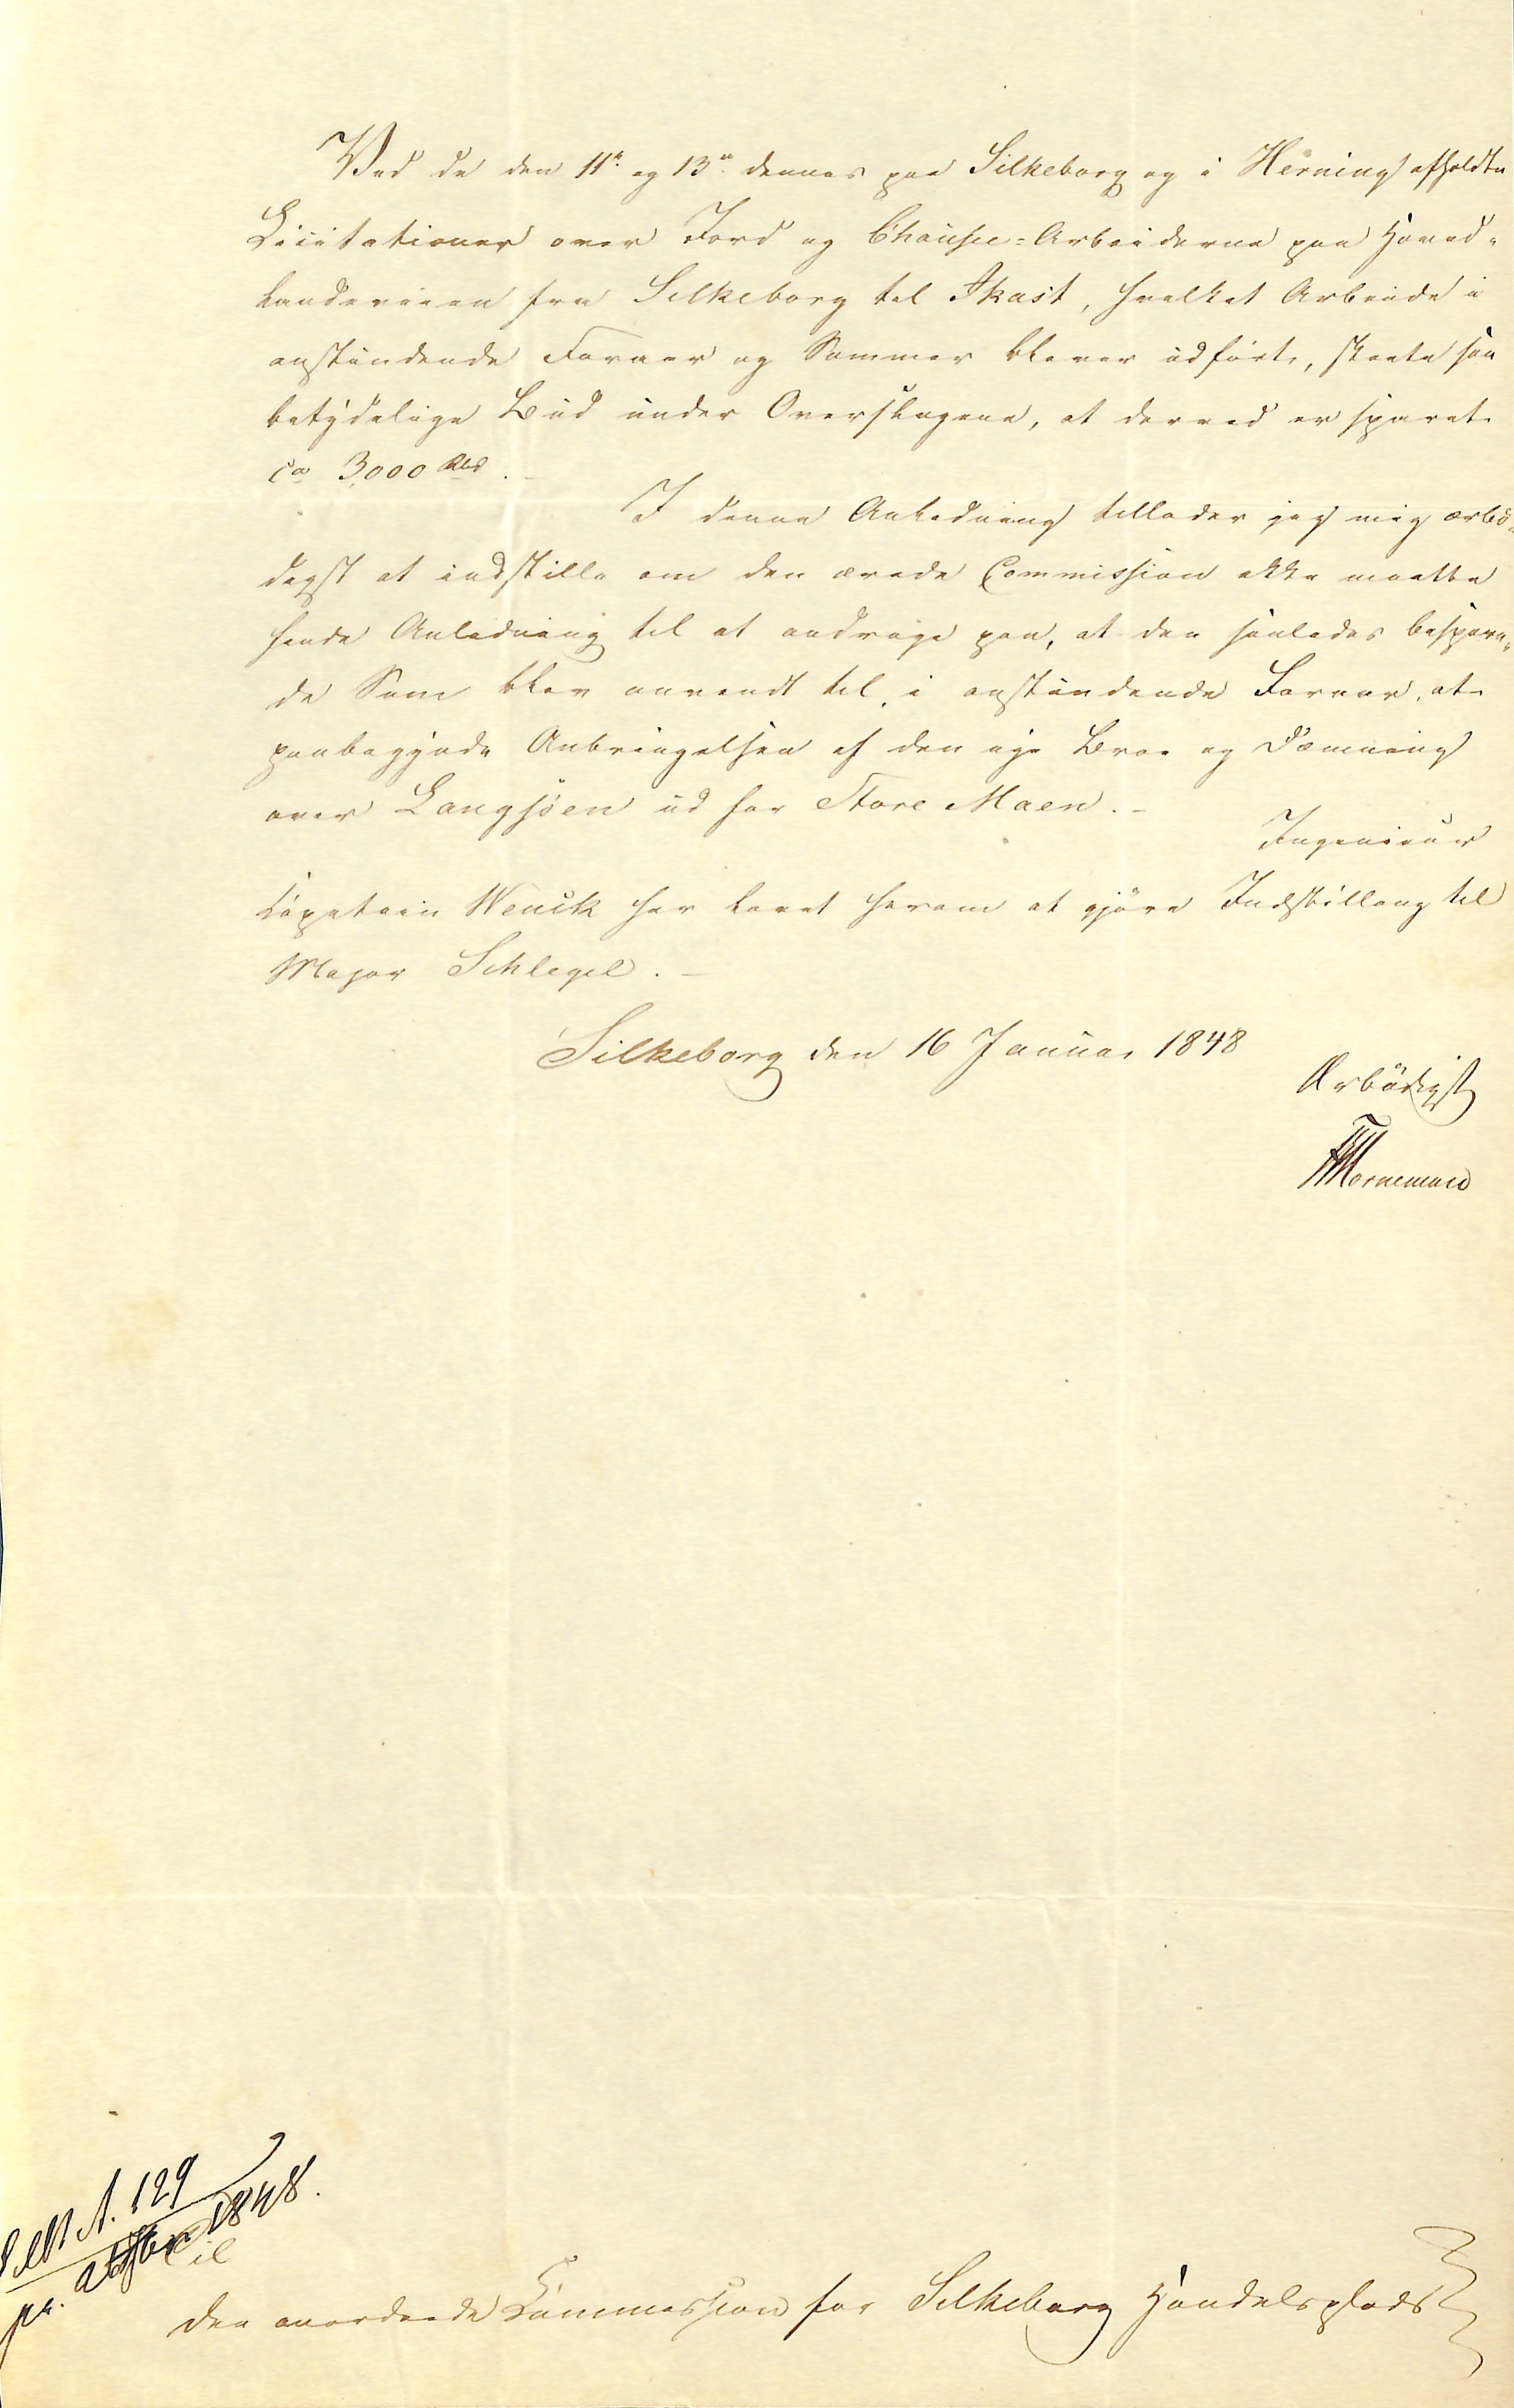 Ved de den 11te og 13de dennes paa Silkeborg og i Herning afholdte
Licitationer over Jord og Chausee-Arbeiderne paa Hoved-
landeveien fra Silkeborg til Ikast, hvilket Arbeide i
anstundende Foraar og Sommer bliver udført, skeete saa
betydelige Bud under Overslagene, at derved er sparet
ca 3000 Rbd.
I denne Anledning tillader jeg mig ærbö-
digst at indstille om den ærede Commission ikke maatte
finde Anledning til at andrage paa, at den saaledes bespare-
de Sum blev anvendt til, i anstundende Foraar, at
paabegynde Anbringelsen af den nye Broe og Dæmning
over Langsöen ud for Store Maen.
Ingenieur
Capitain Wenck har lovet herom at gjöre Indstilling til
Major Schlegel.
Silkeborg den 16 Januar 1848
Ærbödigst
Silkb A. 129
1848.
Til
den anordnede Commission for Silkeborg Handelsplads